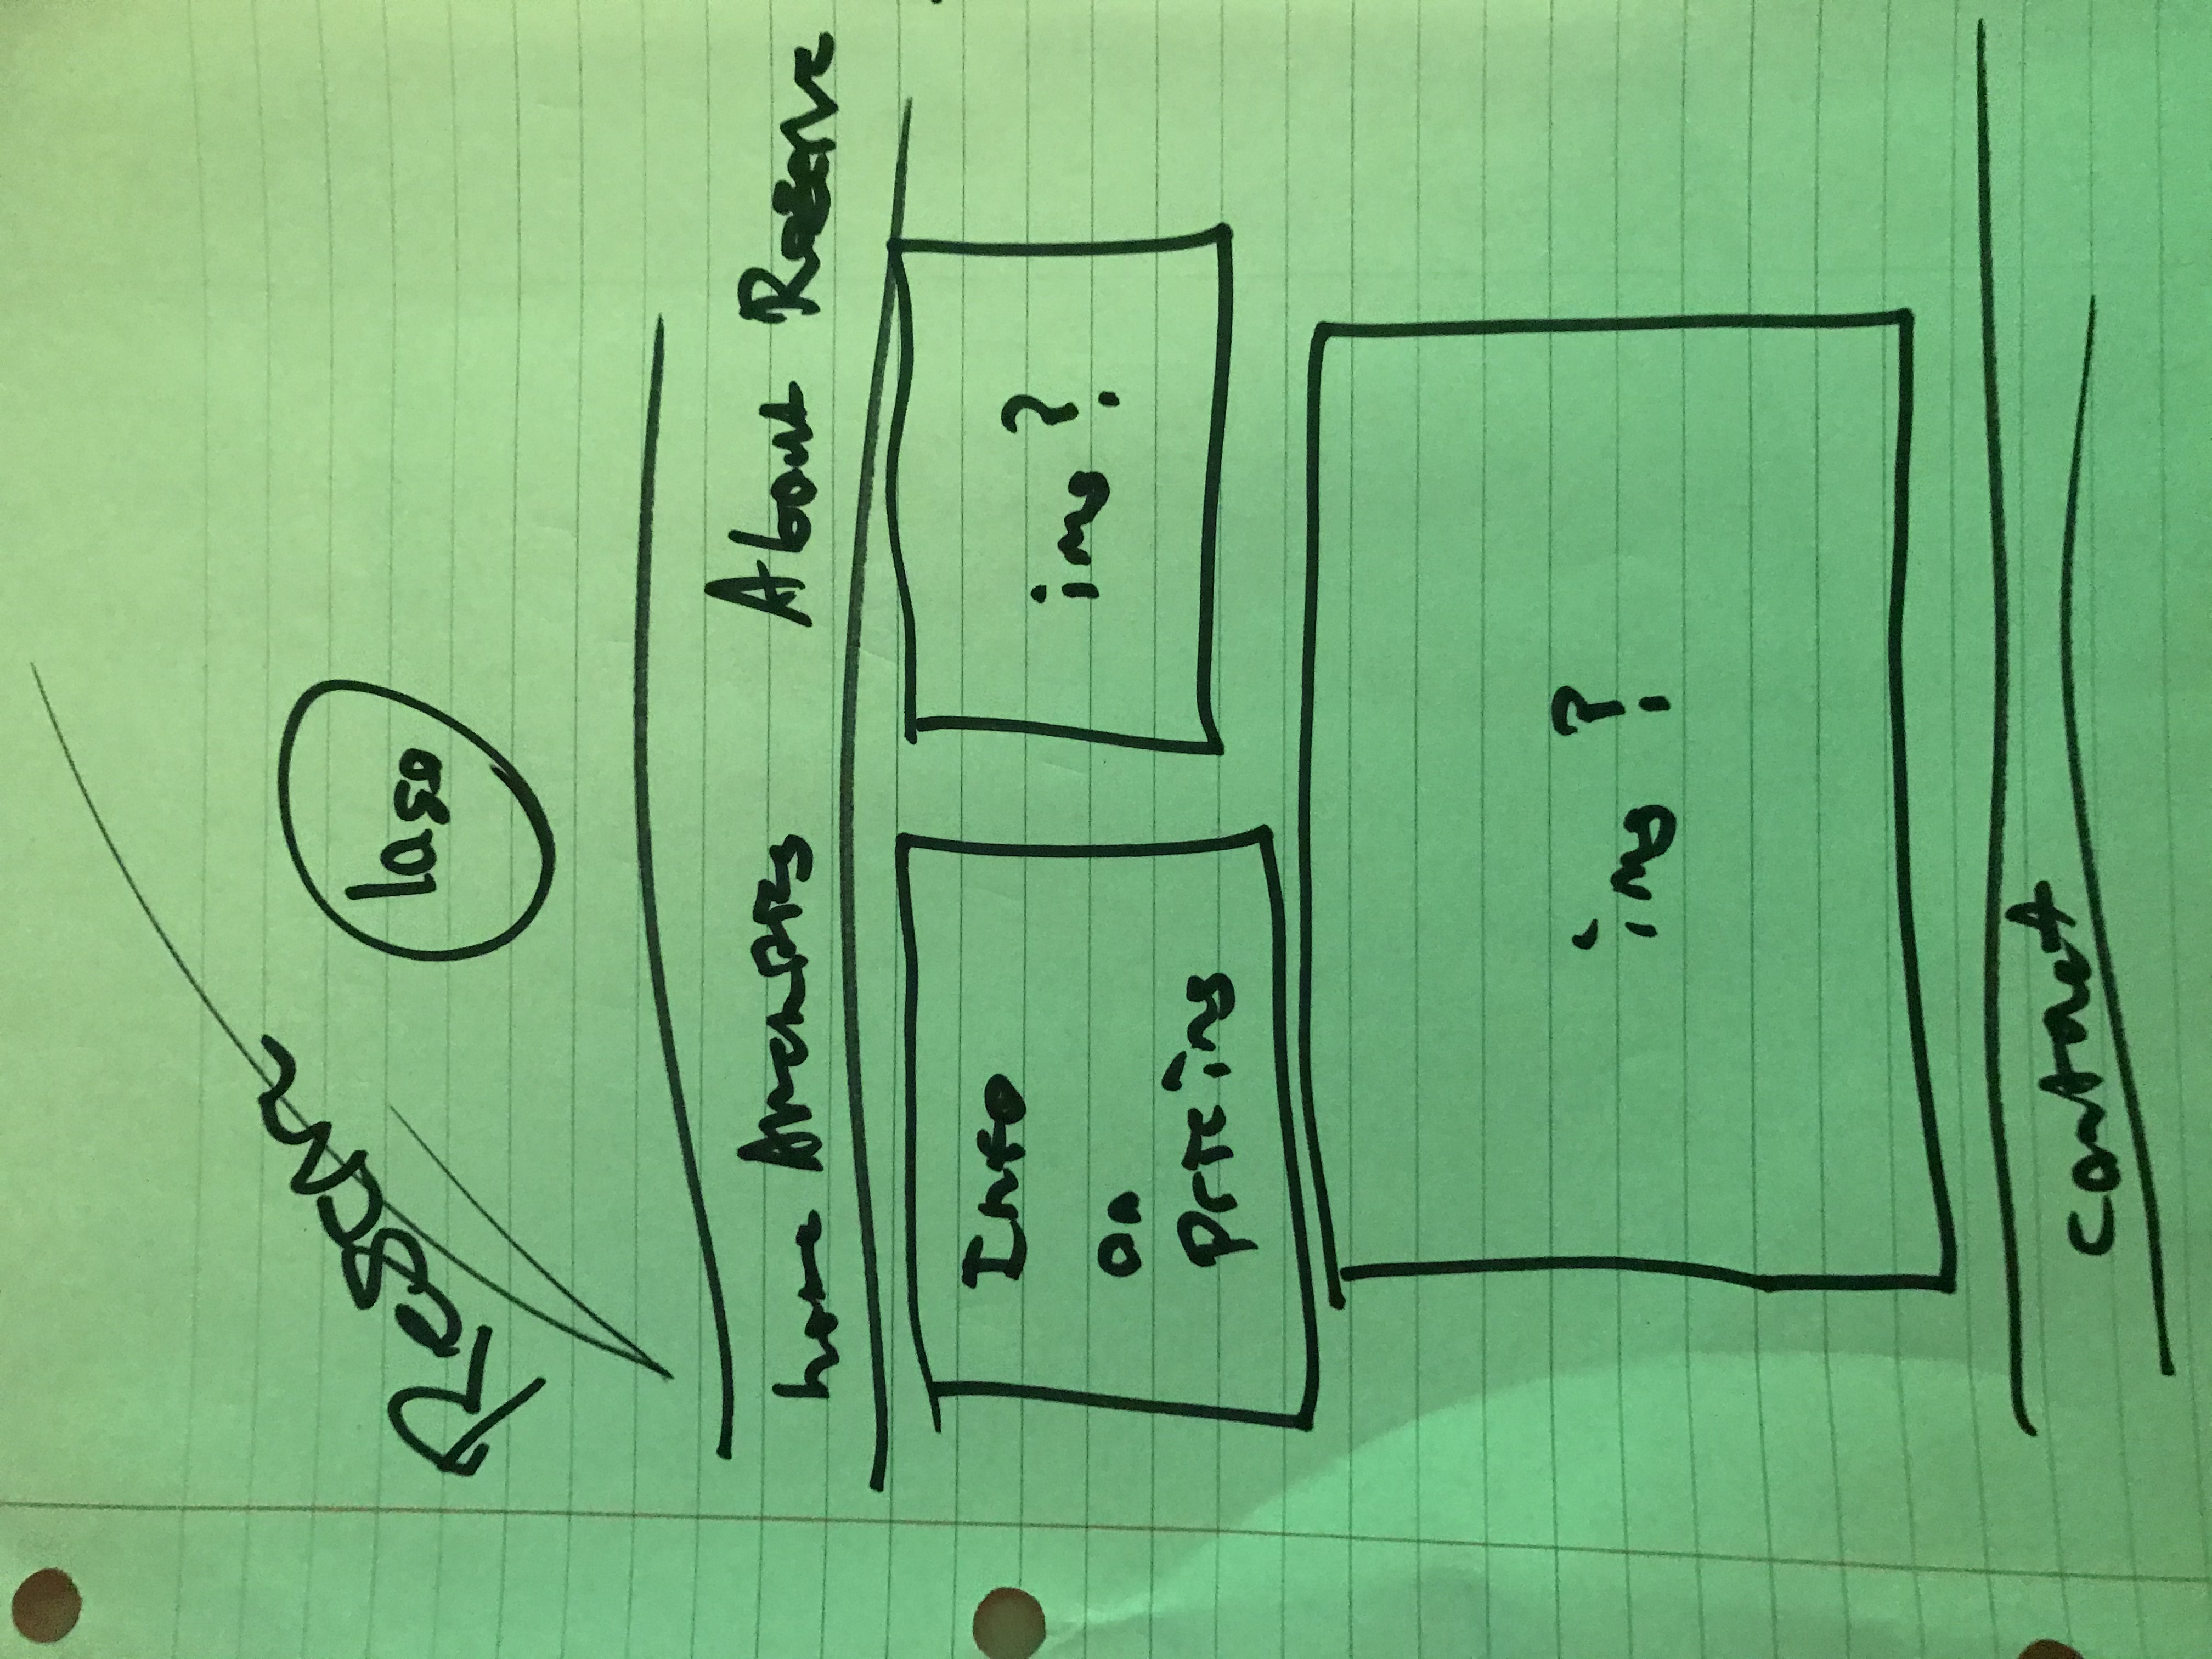 Reserve
logo
home Amenities About Reserve
Info
on
Pricing
img ?
img ?
contact